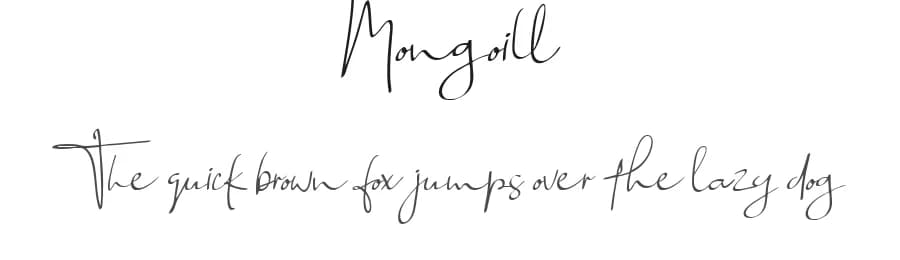 Mongoill
The quick brown fox jumps over the lazy dog